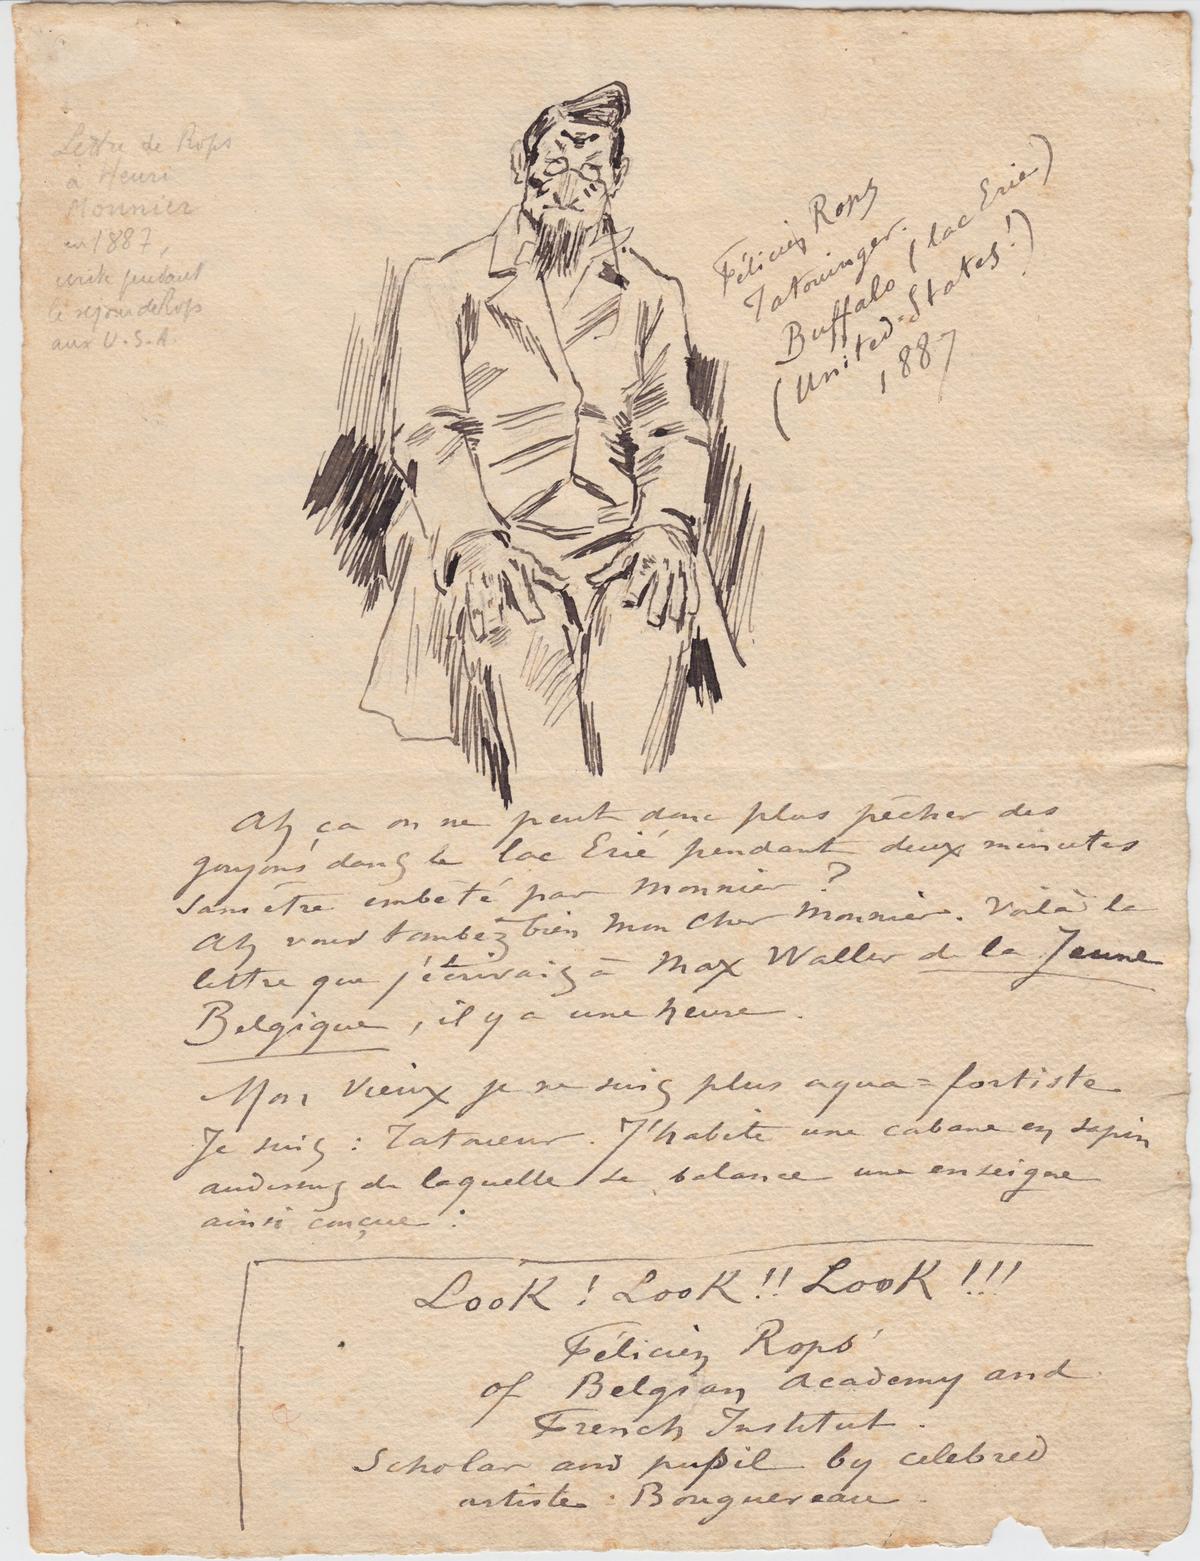 Lettre de Rops
à Henri
Monnier
en 1887,
écrite pendant
le séjour de Rops
aux U.S.A.
Félicien Rops
Tatouinger.
Buffalo (lac Erié)
(United=States!)
1887
Ah ça on ne peut donc plus pêcher des
goujons dans le lac Erié pendant deux minutes
sans être embêté par Monnier ?
Ah vous tombez bien mon cher Monnier. Voilà la
lettre que j'écrivais à Max Waller de la Jeune
Belgique, il y a une heure.
Mon Vieux je ne suis plus aqua=fortiste
Je suis : Tatoueur. J'habite une cabane en sapin
audessus de laquelle se balance une enseigne
ainsi conçue :
Look ! Look !! Look !!!
Félicien Rops'
of Belgian Academy and
French Institut.
Scholar and pupil by celebred
artiste : Bouguereau.